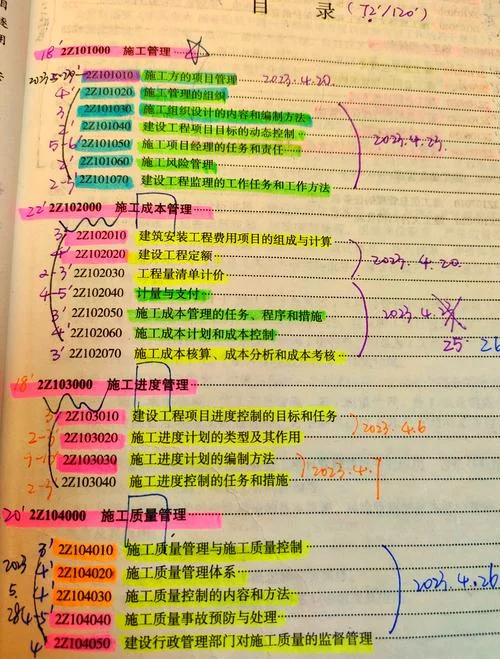 目 录 (72'/120')
18' 2Z101000 施工管理
2Z101010 施工方的项目管理 2023.4.20
4' 2Z101020 施工管理的组织
3' 2Z101030 施工组织设计的内容和编制方法
2' 2Z101040 建设工程项目目标的动态控制 2023.4.23
5-6' 2Z101050 施工项目经理的任务和责任
2' 2Z101060 施工风险管理
2-3' 2Z101070 建设工程监理的工作任务和工作方法
22' 2Z102000 施工成本管理
3' 2Z102010 建筑安装工程费用项目的组成与计算
4' 2Z102020 建设工程定额 2023.4.20
2-3' 2Z102030 工程量清单计价
4-5' 2Z102040 计量与支付
3' 2Z102050 施工成本管理的任务、程序和措施 2023.4.
4' 2Z102060 施工成本计划和成本控制 25 26
3' 2Z102070 施工成本核算、成本分析和成本考核
18' 2Z103000 施工进度管理
3' 2Z103010 建设工程项目进度控制的目标和任务 2023.4.6
2Z103020 施工进度计划的类型及其作用
2Z103030 施工进度计划的编制方法 2023.4.7
2Z103040 施工进度控制的任务和措施
20' 2Z104000 施工质量管理
3' 2Z104010 施工质量管理与施工质量控制
2023 4' 2Z104020 施工质量管理体系 2023.4.26
5. 4' 2Z104030 施工质量控制的内容和方法
28 4-5' 2Z104040 施工质量事故预防与处理
4' 2Z104050 建设行政管理部门对施工质量的监督管理